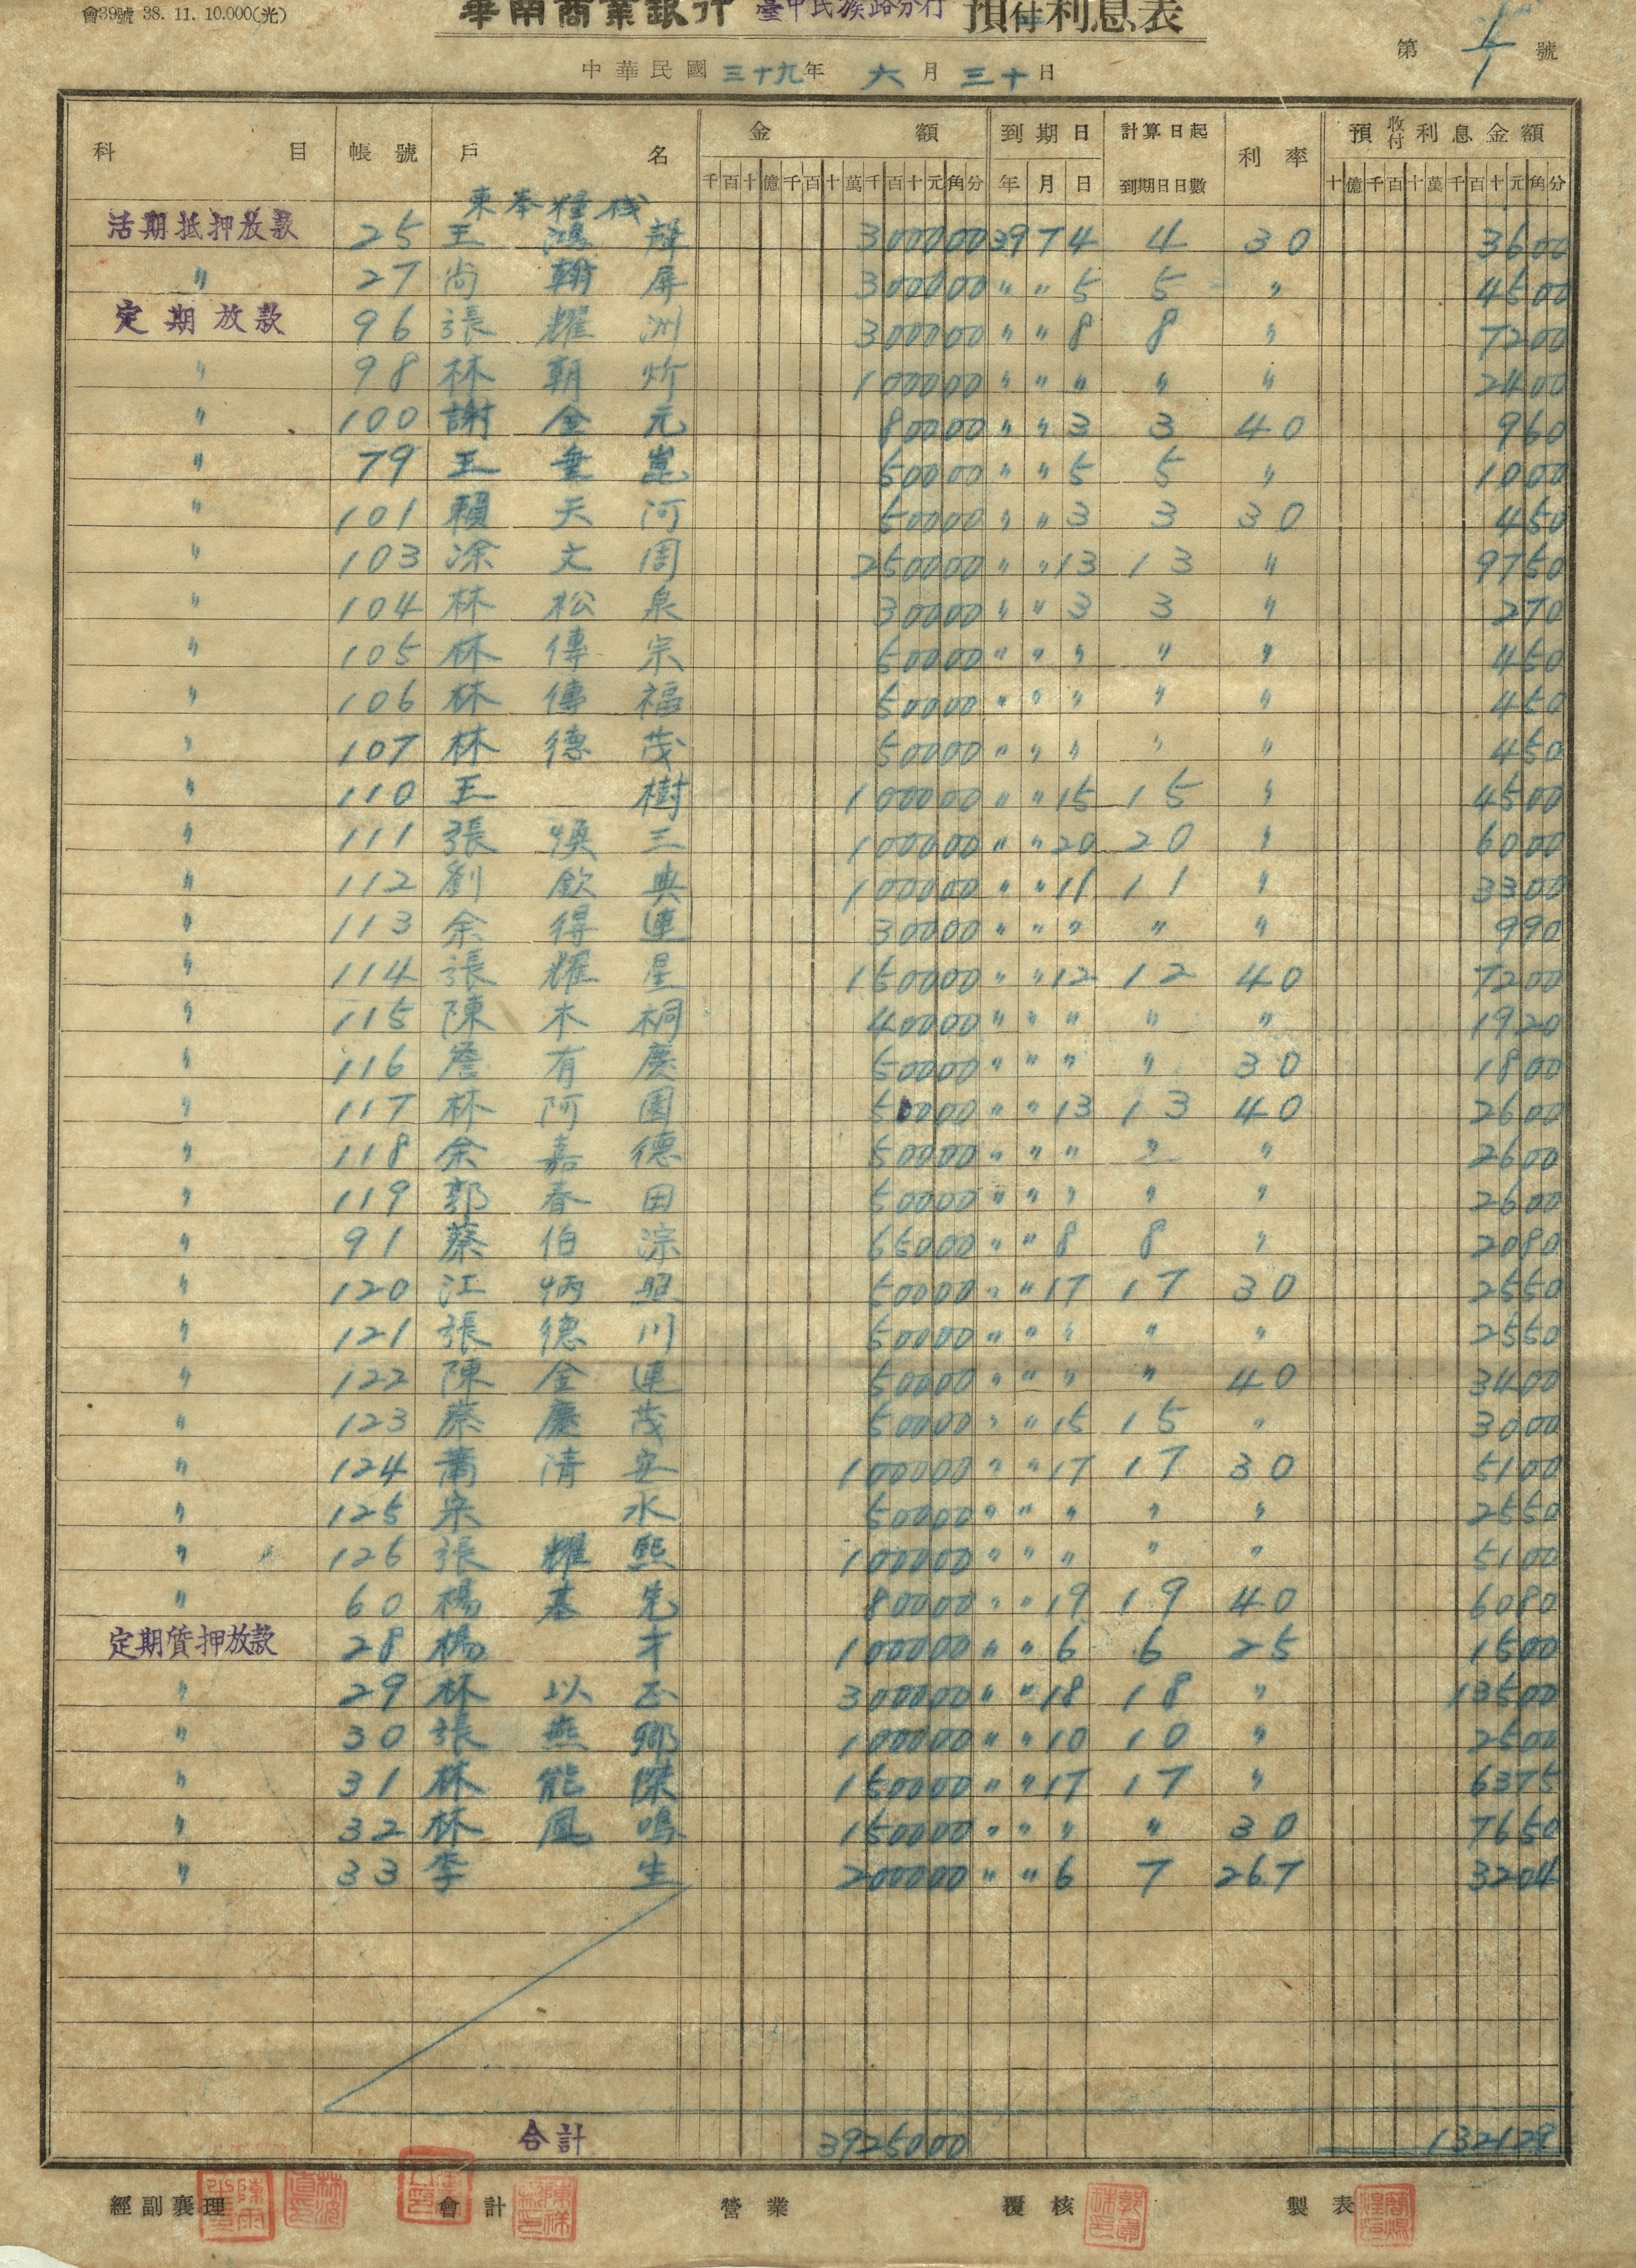 會39號 38. 11. 10.000(光)
華南商業銀行 臺中民族路分行 預付利息表
第 1/1 號
中華民國三十九年 六月三十日
科目 帳號 戶名 金額 到期日 計算日起到期日日數 利率 預收付利息金額
千百十億千百十萬千百十元角分 年 月 日 十億千百十萬千百十元角分
東泰糧棧
活期抵押放款 25 王鴻 300000 39 7 4 4 30 3600
〃 27 尚翰屏 300000 〃 〃 5 5 〃 4500
定期放款 96 張耀洲 300000 〃 〃 8 8 〃 7200
〃 98 林朝炘 100000 〃 〃 〃 〃 〃 2400
〃 100 謝金元 80000 〃 〃 3 3 40 960
〃 79 王垂崑 50000 〃 〃 5 5 〃 1000
〃 101 賴天河 50000 〃 〃 3 3 30 450
〃 103 涂文周 250000 〃 〃 13 13 〃 9750
〃 104 林松泉 30000 〃 〃 3 3 〃 270
〃 105 林傳宗 50000 〃 〃 〃 〃 〃 450
〃 106 林傳福 50000 〃 〃 〃 〃 〃 450
〃 107 林德茂 50000 〃 〃 〃 〃 〃 450
〃 110 王樹 100000 〃 〃 15 15 〃 4500
〃 111 張煥三 100000 〃 〃 20 20 〃 6000
〃 112 劉欽典 100000 〃 〃 11 11 〃 3300
〃 113 余得連 30000 〃 〃 〃 〃 〃 990
〃 114 張耀星 150000 〃 〃 12 12 40 7200
〃 115 陳木桐 40000 〃 〃 〃 〃 〃 1920
〃 116 詹有慶 50000 〃 〃 〃 〃 30 1800
〃 117 林阿園 50000 〃 〃 13 13 40 2600
〃 118 余嘉德 50000 〃 〃 〃 〃 〃 2600
〃 119 郭春田 50000 〃 〃 〃 〃 〃 2600
〃 91 蔡伯淙 65000 〃 〃 8 8 〃 2080
〃 120 江炳照 50000 〃 〃 17 17 30 2550
〃 121 張德川 50000 〃 〃 〃 〃 〃 2550
〃 122 陳金連 50000 〃 〃 〃 〃 40 3400
〃 123 蔡慶茂 50000 〃 〃 15 15 〃 3000
〃 124 蕭清安 100000 〃 〃 17 17 30 5100
〃 125 宋水 50000 〃 〃 〃 〃 〃 2550
〃 126 張耀熙 100000 〃 〃 〃 〃 〃 5100
〃 60 楊基先 80000 〃 〃 19 19 40 6080
定期質押放款 28 楊才 100000 〃 〃 6 6 25 1500
〃 29 林以正 300000 〃 〃 18 18 〃 13500
〃 30 張燕鄉 100000 〃 〃 10 10 〃 2500
〃 31 林能傑 150000 〃 〃 17 17 〃 6375
〃 32 林鳳鳴 150000 〃 〃 〃 〃 30 7650
〃 33 李生 200000 〃 〃 6 7 26.7 3204
合計 3925000 132129
經副襄理 會計 營業 覆核 製表